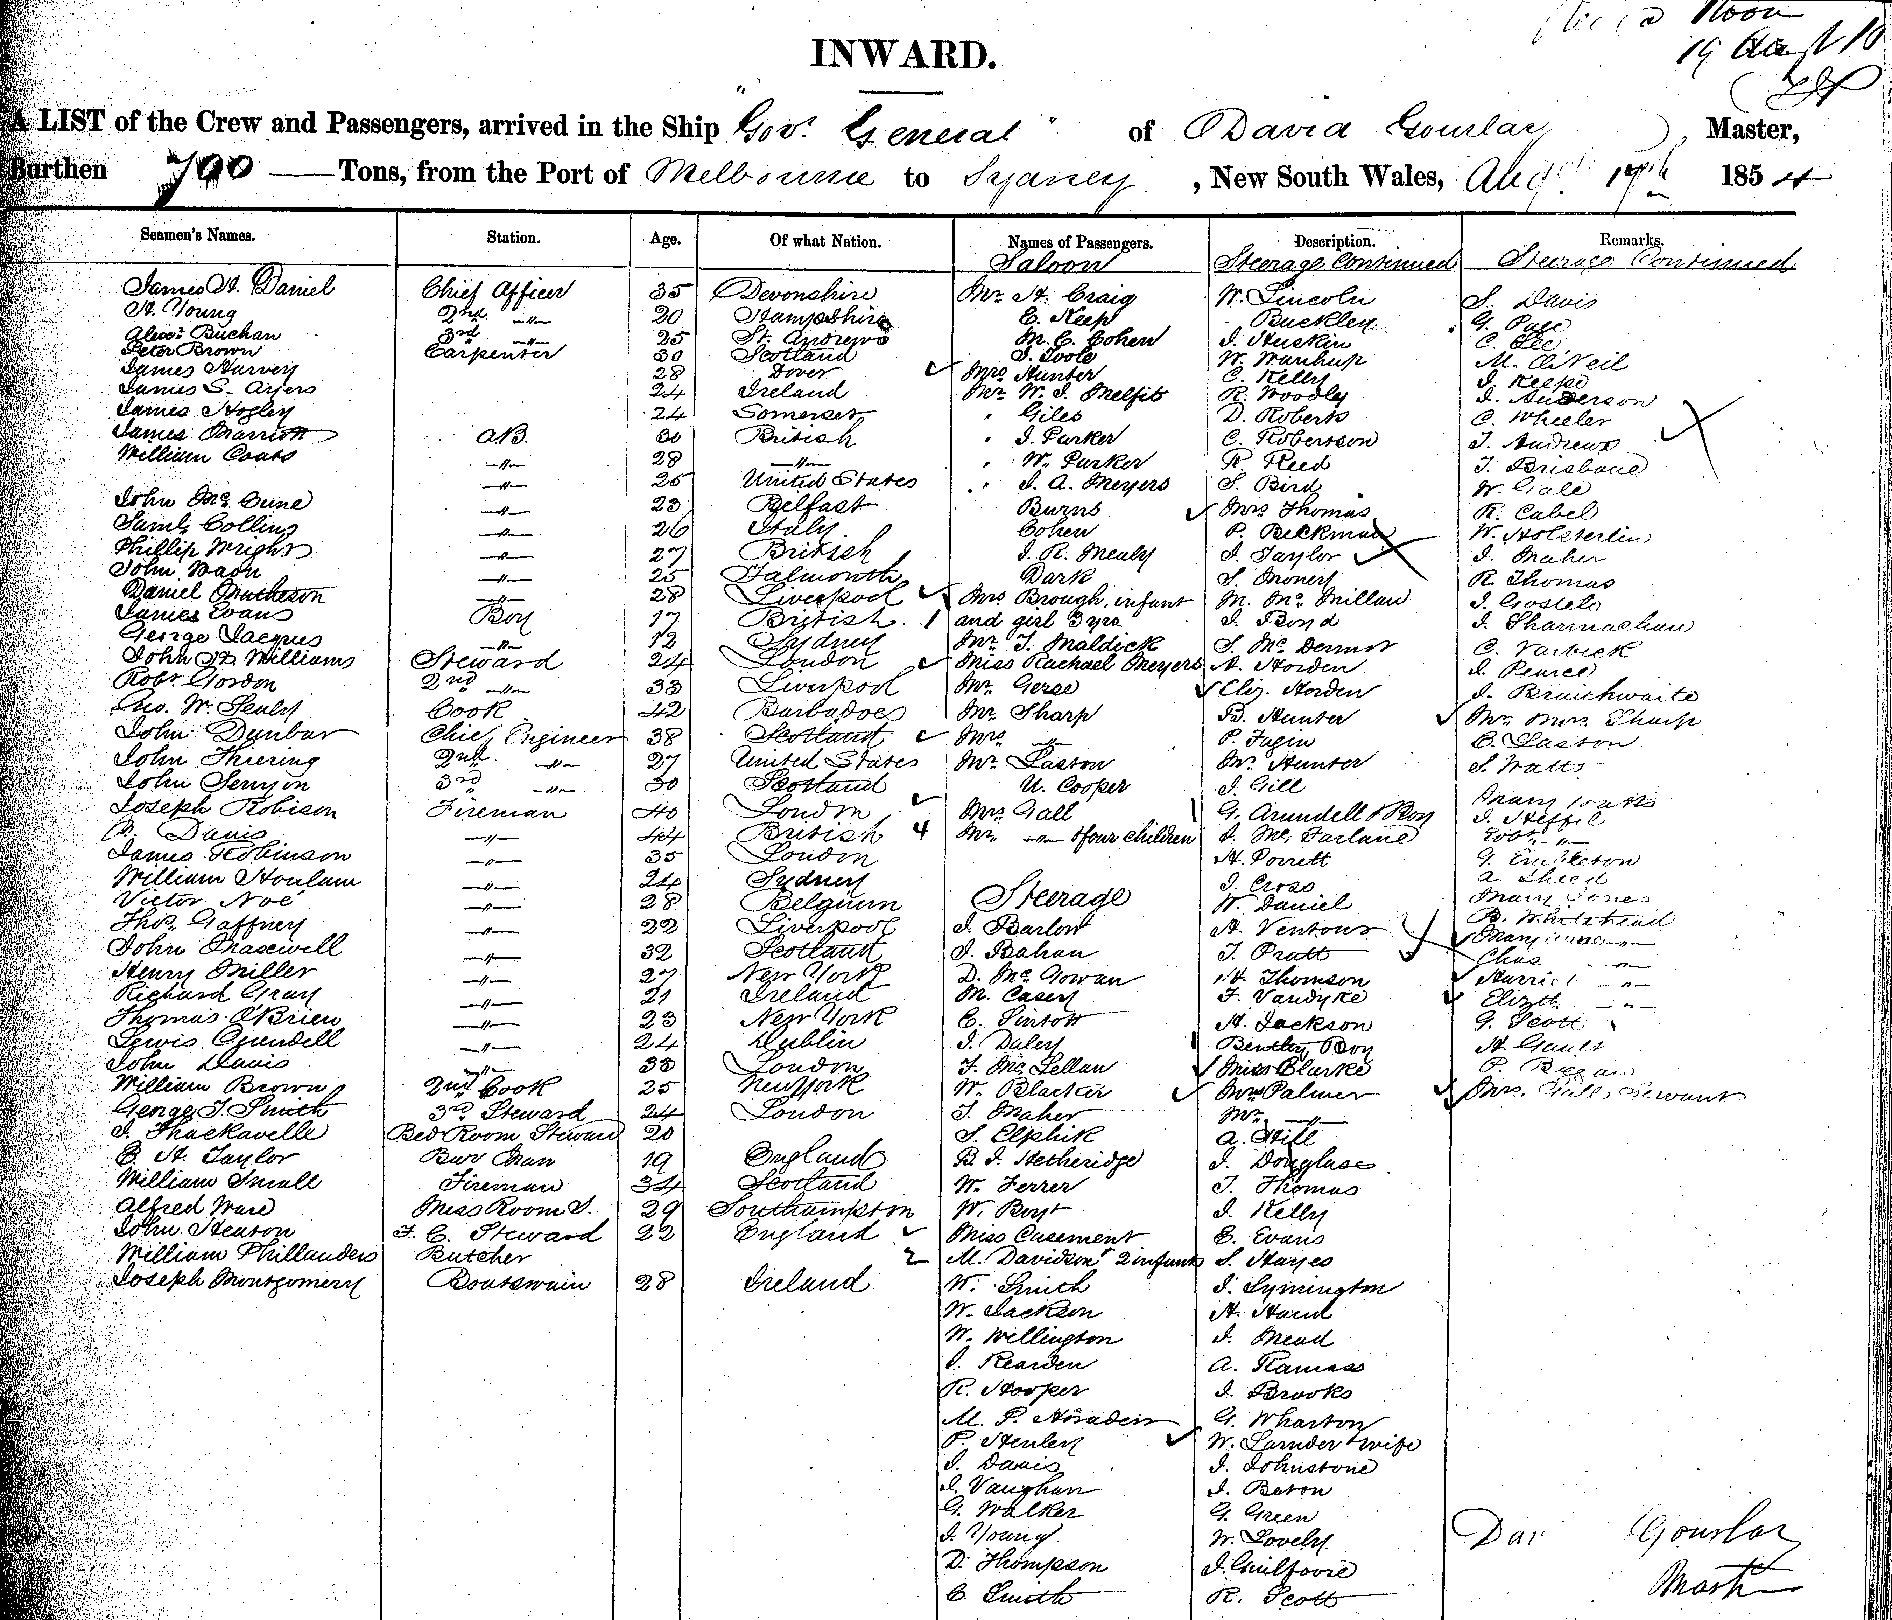 Noon
19
INWARD.
A LIST of the Crew and Passengers, arrived in the Ship "Gov. General" of David Gourlay, Master,
Burthen 700 Tons, from the Port of Melbourne to Sydney, New South Wales, Augt 19th 1854
Seamen's Names. Station. Age. Of what Nation. Names of Passengers. Description. Remarks.
Saloon Steerage Continued Steerage Continued
James H. Daniel Chief Officer 35 Devonshire Mr H. Craig W. Lincoln S. Davis
H. Young 2nd -"- 20 Hampshire E. Keep Buckley G. Page
Alexr Buchan 3rd -"- 25 St. Andrews M. C. Cohen J. Huskin C. Lee
Peter Brown Carpenter 30 Scotland J. Toole W. Wanhup M. O'Neil
James Harvey 28 Dover Mrs Hunter C. Kelly J. Keefe
James S. Ayers 24 Ireland Mr W. J. Melfits R. Woodly J. Anderson
James Hogley 24 Somerset " Giles D. Roberts C. Wheeler
James Marriott AB. 30 British " J. Parker C. Robertson J. Andrews
William Coats -"- 28 -"- " W. Parker R. Reed T. Brisbane
-"- 25 United States " J. A. Meyers S. Bird W. Gale
John Mc Cune -"- 23 Belfast Burns Mrs Thomas R. Cabel
Saml Collins -"- 26 Italy Cohen P. Beckman W. Holsterlin
Phillip Wright -"- 27 British J. R. Mealy J. Taylor J. Maher
John Waon -"- 25 Falmouth Dark S. Money R. Thomas
Daniel Matheson -"- 28 Liverpool Mrs Brough, infant M. Mc Millan J. Costelo
James Evans Boy 17 British 1 and girl 3 yrs J. Bond J. Sharmachan
George Jacques -"- 12 Sydney Mr J. Maldick S. Mc Dermot C. Varbick
John H. Williams Steward 24 London Miss Rachael Meyers A. Horden J. Pearce
Robt Gordon 2nd -"- 33 Liverpool Mr. Gerse Eliz. Horden J. Braithwaite
Cook 42 Barbadoes Mr Sharp B. Hunter Mr Mrs Sharp
John Dunbar Chief Engineer 38 Scotland Mrs -"- P. Fagin E. Laston
John Thiering 2nd -"- 27 United States Mr Laston Mr Hunter S. Watts
John Senyon 3rd -"- 30 Scotland U. Cooper J. Gill Mary Watts
Joseph Robison Fireman 40 London Mrs Gall 1 G. Arundell & Boy
Davis -"- 44 British 4 Mr -"- & four children J. Mc Farlane
James Robinson -"- 35 London H. Porrett
William Houlam -"- 24 Sydney J. Cross
Victor Noe -"- 28 Belgium Steerage W. Daniel Mary Jones
Thos. Gaffney -"- 22 Liverpool J. Barlow H. Ventour
John Trasewell -"- 32 Scotland J. Bahan T. Pratt Chas -"-
Henry Miller -"- 27 New York D. Mc Gowan H. Thomson Harriet -"-
Richard Gray -"- 21 Ireland M. Casey F. Vandyke Elizth -"-
Thomas O'Brien -"- 23 New York C. Sintott H. Jackson G. Scott
Lewis Crundell -"- 24 Dublin J. Daley 1 Bentley Boy
John Davis -"- 33 London F. Mc Lellan Miss Clarke
William Brown 2nd Cook 25 New York W. Blacker Mrs Palmer Mrs. Servant
George T. Smith 3rd Steward 24 London J. Maher Mr. -"-
J. Thackavelle Bed Room Steward 20 S. Elphik A. Hill
E. H. Taylor Bar Man 19 England B. J. Hetheridge J. Douglass
William Small Fireman 34 Scotland W. Ferrer J. Thomas
Alfred Ware Mess Room S. 29 Southampton W. Boyt J. Kelly
John Heaton F. C. Steward 22 England Miss Casement E. Evans
William Phillanders Butcher 2 M. Davidson & 2 infants S. Hayes
Joseph Montgomery Boatswain 28 Ireland W. Smith J. Symington
W. Jackson H. Hand
W. Wellington J. Mead
J. Rearden A. Ramass
R. Hooper J. Brooks
G. Wharton
P. Henley W. Larnder & wife
J. Davis J. Johnstone
J. Vaughan J. Beton
G. Walker G. Green
J. Young W. Lovely
D. Thompson J. Guilfoyle
C. Smith R. Scott
Dav Gourlay
Master